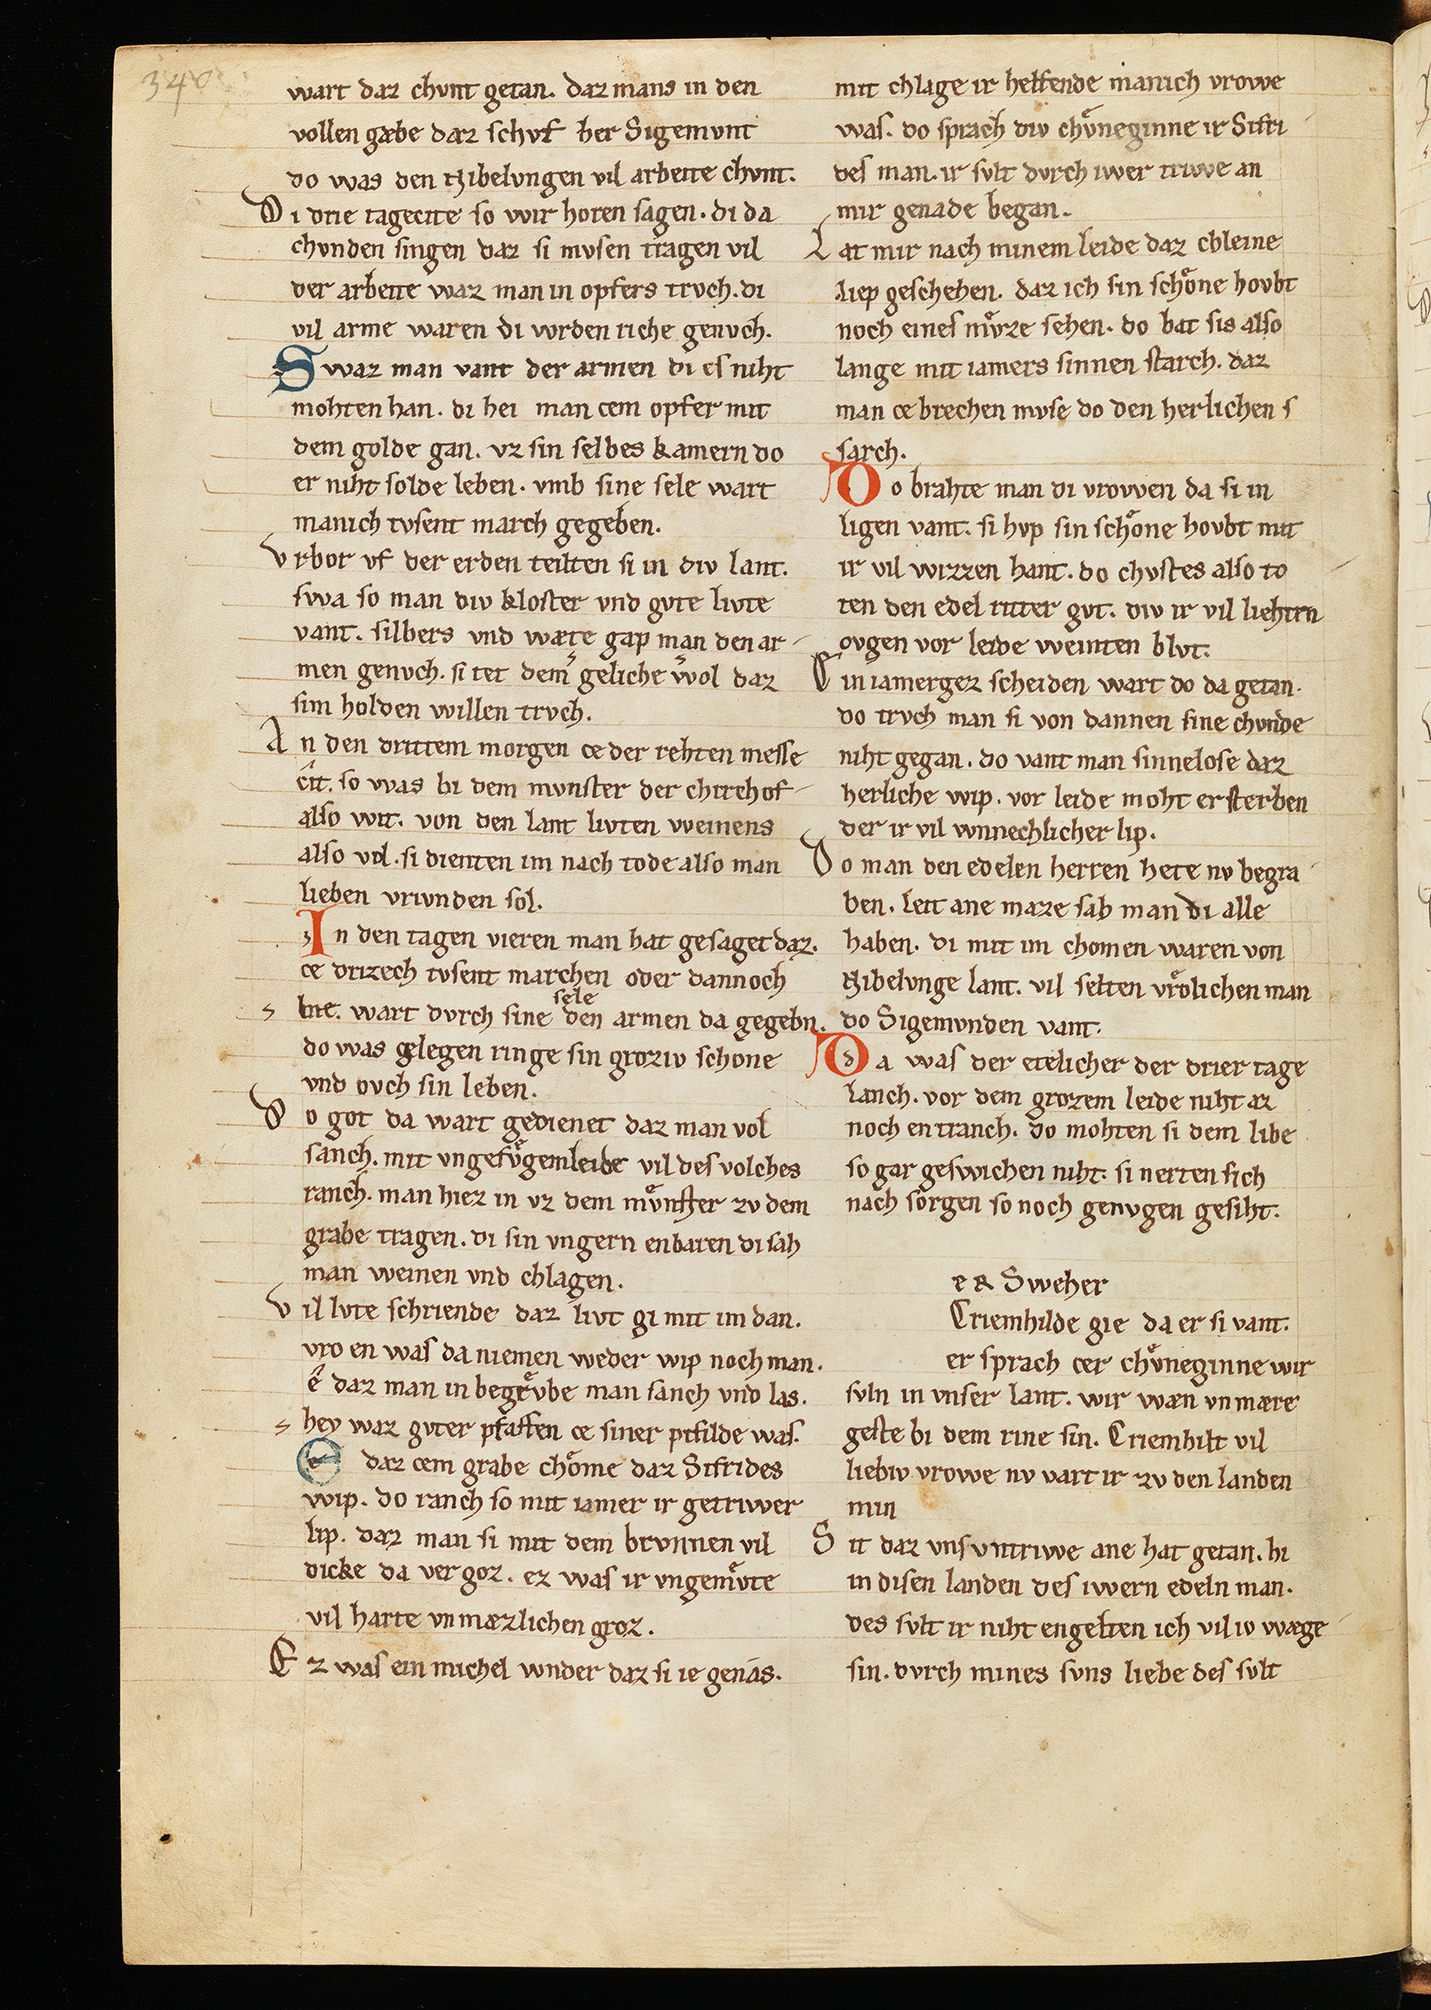 340
wart daz chvnt getan. daz mans in den
vollen gæbe daz schvf her Sigemvnt
do was den Nibelvngen vil arbeite chvnt.
Di drie tagecite so wir horen sagen. di da
chvnden singen daz si mvsen tragen vil
der arbeite waz man in opfers trvch. di
vil arme waren di wrden riche genvch.
Swaz man vant der armen di es niht
mohten han. di hei man cem opfer mit
dem golde gan. vz sin selbes kamern do
er niht solde leben. vmb sine sele wart
manich tvsent march gegeben.
Vrbor vf der erden teilten si in div lant.
swa so man div kloster vnd gvte livte
vant. silbers vnd wæte gap man den ar-
men genvch. si tet dem geliche wol daz
sim holden willen trvch.
An den drittem morgen ce der rehten messe
cit. so was bi dem mvnster der chirchof
also wit. von den lant livten weinens
also vol. si dienten im nach tode also man
lieben vrivnden sol.
In den tagen vieren man hat gesaget daz.
ce drizech tvsent marchen oder dannoch
baz. wart dvrch sine sele den armen da gegebn.
do was gelegen ringe sin groziv schone
vnd ovch sin leben.
Do got da wart gedienet daz man vol
sanch. mit vngefvͦgem leide vil des volches
ranch. man hiez in vz dem mvͤnster zv dem
grabe tragen. di sin vngern enbaren di sah
man weinen vnd chlagen.
Vil lvte schriende daz livt gi mit im dan.
vro en was da niemen weder wip noch man.
ê daz man in begrvͤbe man sanch vnd las.
hey waz gvter pfaffen ce siner pifilde was.
e daz cem grabe choͤme daz Sifrides
wip. do ranch so mit iamer ir getriwer
lip. daz man si mit dem brvnnen vil
dicke da vergoz. ez was ir vngemvͤte
vil harte vnmæzlichen groz.
Ez was ein michel wnder daz si ie genas.
mit chlage ir helfende manich vrowe
was. do sprach div chvͤneginne ir Sifri
des man. ir svlt dvrch iwer triwe an
mir genade began.
Lat mir nach minem leide daz chleine
liep geschehen. daz ich sin schoͤne hovbt
noch eines mvͤze sehen. do bat sis also
lange mit iamers sinnen starch. daz
man ce brechen mvse do den herlichen s
sarch.
Do brahte man di vrowen da si in
ligen vant. si hvp sin schoͤne hovbt mit
ir vil wizzen hant. do chvstes also to
ten den edel ritter gvt. div ir vil liehten
ovgen vor leide weinten blvt.
Ein iamergez scheiden wart do da getan.
do trvch man si von dannen sine chvnde
niht gegan. do vant man sinnelose daz
herliche wip. vor leide moht ersterben
der ir vil wnnechlicher lip.
Do man den edelen herren hete nv begra
ben. leit ane maze sah man di alle
haben. di mit im chomen waren von
Nibelvnge lant. vil selten vroͤlichen man
do Sigemvnden vant.
Da was der etelicher der drier tage
lanch. vor dem grozem leide niht az
noch entranch. do mohten si dem libe
so gar geswichen niht. si nerten sich
nach sorgen so noch genvgen gesiht.
eR Sweher
Criemhilde gie da er si vant.
er sprach cer chvͤneginne wir
svln in vnser lant. wir wæn vnmære
geste bi dem rine sin. Criemhilt vil
liebiv vrowe nv vart ir zv den landen
min
Sit daz vns vntriwe ane hat getan. hi
in disen landen des iwern edeln man.
des svlt ir niht engelten ich vil iv wæge
sin. dvrch mines svns liebe des svlt